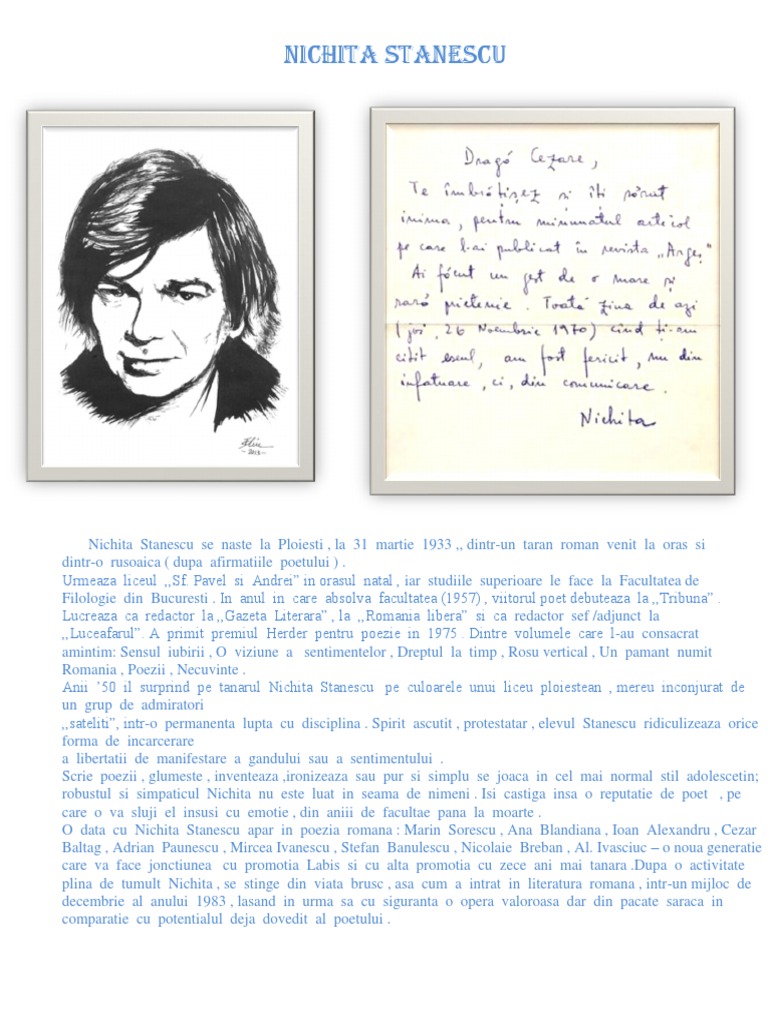 NICHITA STANESCU
Dragă Cezare,
Te îmbrățișez și îți sărut
inima, pentru minunatul articol
pe care l-ai publicat în revista „Argeș"
Ai făcut un gest de o mare și
rară prietenie. Toată ziua de azi
(joi, 26 Noembrie 1970) cînd ți-am
citit eseul, am fost fericit, nu din
infatuare, ci, din comunicare.
Nichita
-2012-
Nichita Stanescu se naste la Ploiesti , la 31 martie 1933 ,, dintr-un taran roman venit la oras si
dintr-o rusoaica ( dupa afirmatiile poetului ) .
Urmeaza liceul ,,Sf. Pavel si Andrei” in orasul natal , iar studiile superioare le face la Facultatea de
Filologie din Bucuresti . In anul in care absolva facultatea (1957) , viitorul poet debuteaza la ,,Tribuna” .
Lucreaza ca redactor la ,,Gazeta Literara” , la ,,Romania libera” si ca redactor sef /adjunct la
,,Luceafarul”. A primit premiul Herder pentru poezie in 1975 . Dintre volumele care l-au consacrat
amintim: Sensul iubirii , O viziune a sentimentelor , Dreptul la timp , Rosu vertical , Un pamant numit
Romania , Poezii , Necuvinte .
Anii ’50 il surprind pe tanarul Nichita Stanescu pe culoarele unui liceu ploiestean , mereu inconjurat de
un grup de admiratori
,,sateliti”, intr-o permanenta lupta cu disciplina . Spirit ascutit , protestatar , elevul Stanescu ridiculizeaza orice
forma de incarcerare
a libertatii de manifestare a gandului sau a sentimentului .
Scrie poezii , glumeste , inventeaza ,ironizeaza sau pur si simplu se joaca in cel mai normal stil adolescetin;
robustul si simpaticul Nichita nu este luat in seama de nimeni . Isi castiga insa o reputatie de poet , pe
care o va sluji el insusi cu emotie , din aniii de facultae pana la moarte .
O data cu Nichita Stanescu apar in poezia romana : Marin Sorescu , Ana Blandiana , Ioan Alexandru , Cezar
Baltag , Adrian Paunescu , Mircea Ivanescu , Stefan Banulescu , Nicolaie Breban , Al. Ivasciuc – o noua generatie
care va face jonctiunea cu promotia Labis si cu alta promotia cu zece ani mai tanara .Dupa o activitate
plina de tumult Nichita , se stinge din viata brusc , asa cum a intrat in literatura romana , intr-un mijloc de
decembrie al anului 1983 , lasand in urma sa cu siguranta o opera valoroasa dar din pacate saraca in
comparatie cu potentialul deja dovedit al poetului .